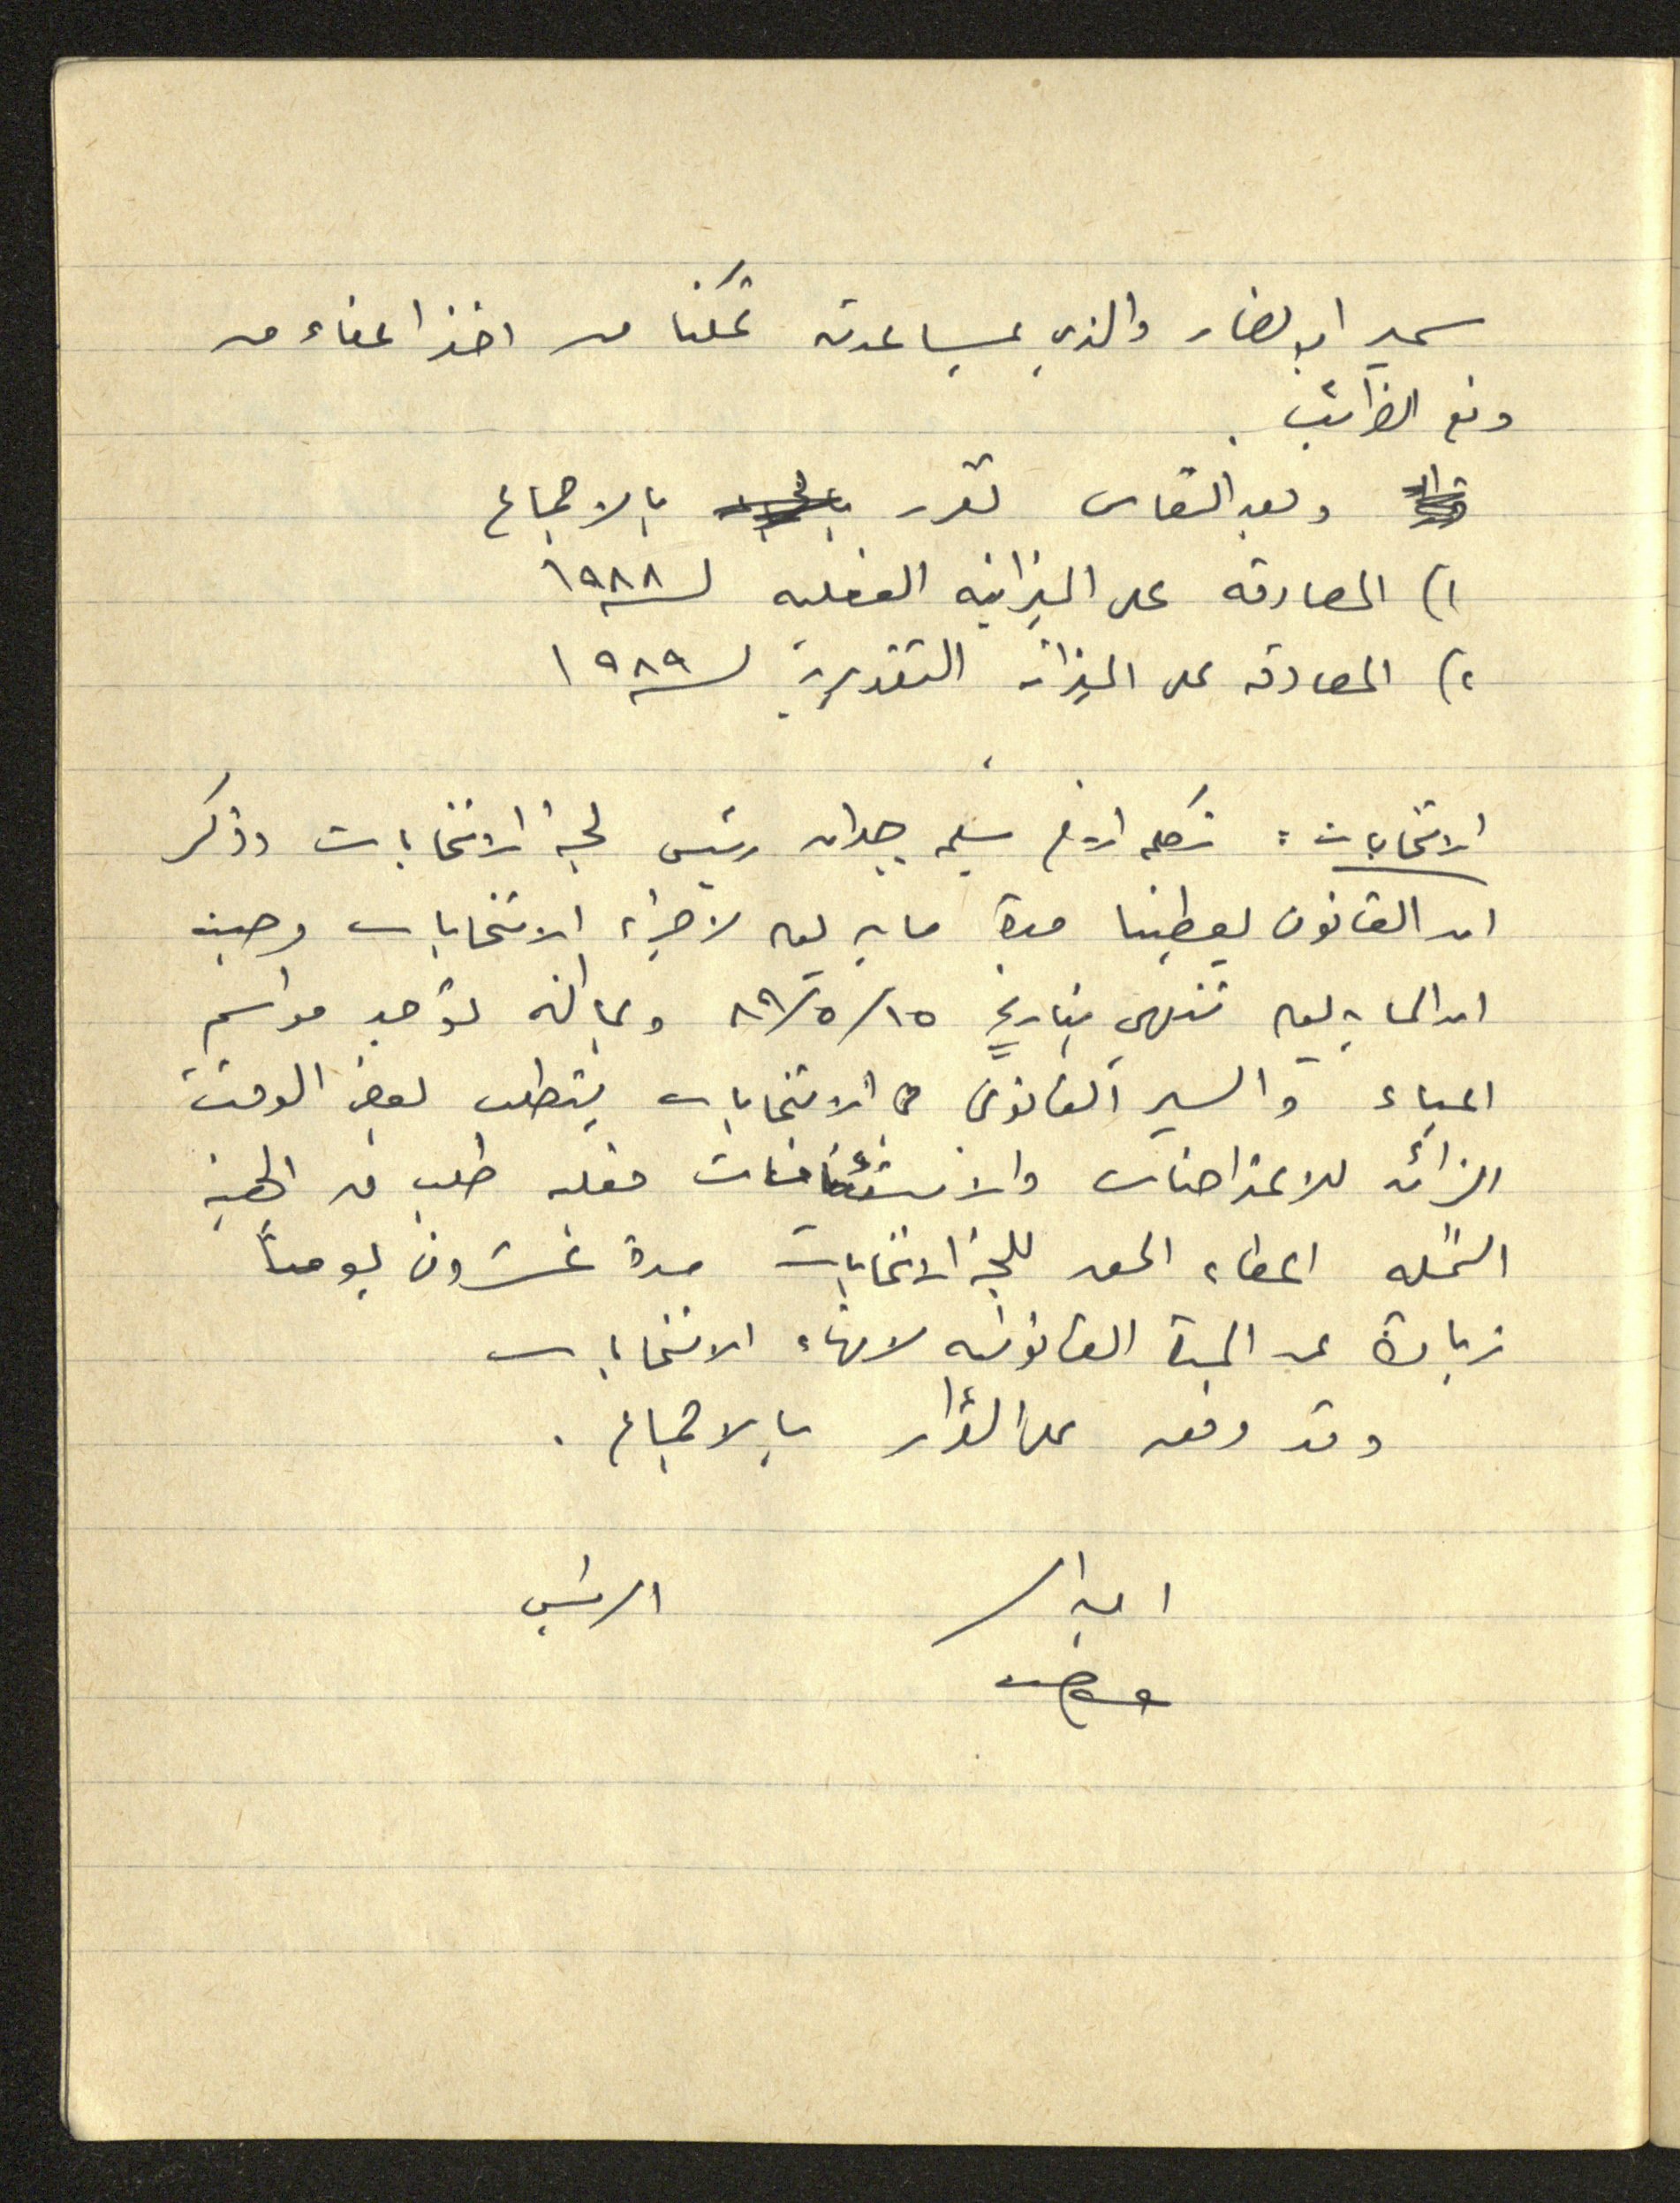 سمير ابو نصار والذي بمساعدته تمكنا من اخذ اعفاء من
دفع الضرائب .
وبعد النقاش تقرر بالاجماع
١) المصادقه على الميزانيه الفعليه لسنة ١٩٨٨
٢) المصادقه على الميزانيه التقديرية لسنة ١٩٨٩
الانتخابات : تكلم الاخ سليم جدان رئيس لجنة الانتخابات وذكر
ان القانون يعطينا مدة مايه يوم لاجراء الانتخابات وحيث
ان المايه يوم تنتهي بتاريخ ١٥/٥/٨٩ وبما انه توجد مراسم
اعياد والسير القانوني الانتخابات يتطلب بعض الوقت
الزائد للاعتراضات والاستئنافات فعليه طلب من الهيئة
الممثله اعطاء الحق للجنة الانتخابات مدة عشرون يوماً
زيادة عن المدة القانونيه لانهاء الانتخابات
وقد وفق على القرار بالاجماع .
امين السر الرئيس